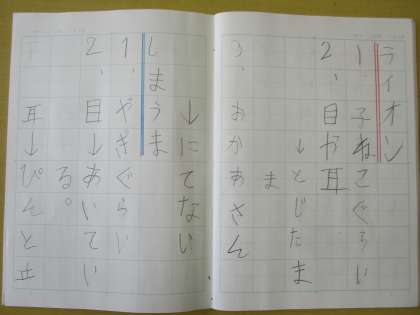 ライオン
1、子ねこぐらい
2、目や耳
↓とじたま
ま
3、おかあさん
↓にてない
しまうま
1、やぎぐらい
2、目→あいてい
る。
耳→ぴんと立